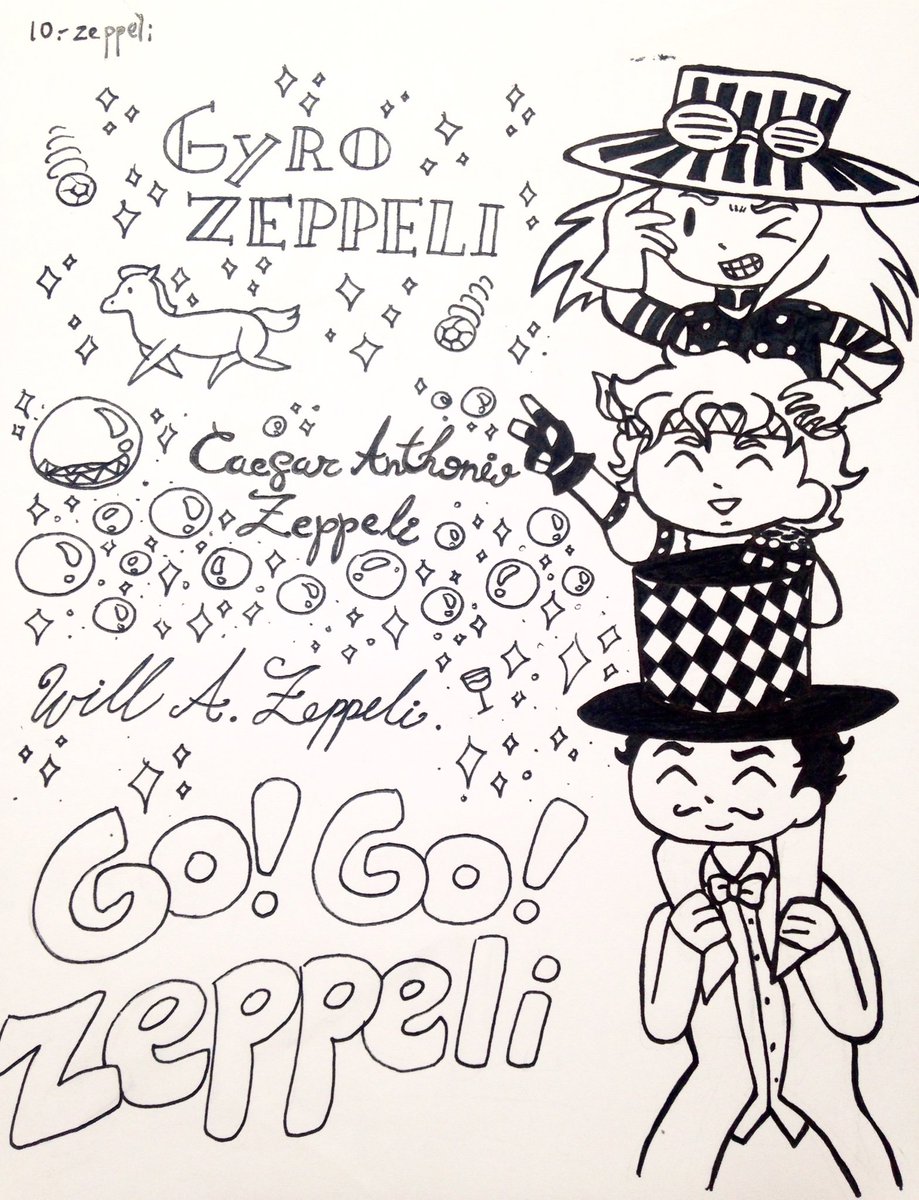 10.- zeppeli
GYRO
ZEPPELI
Caesar Anthonio
Zeppeli
Will A. Zeppeli.
Go! Go!
zeppeli